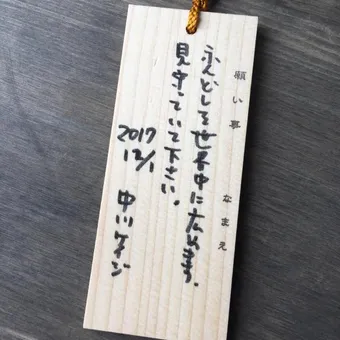 願い事
ふんどしを世界中に広めます。
見守っていて下さい。
2017
12/1
なまえ
中川ケイジ